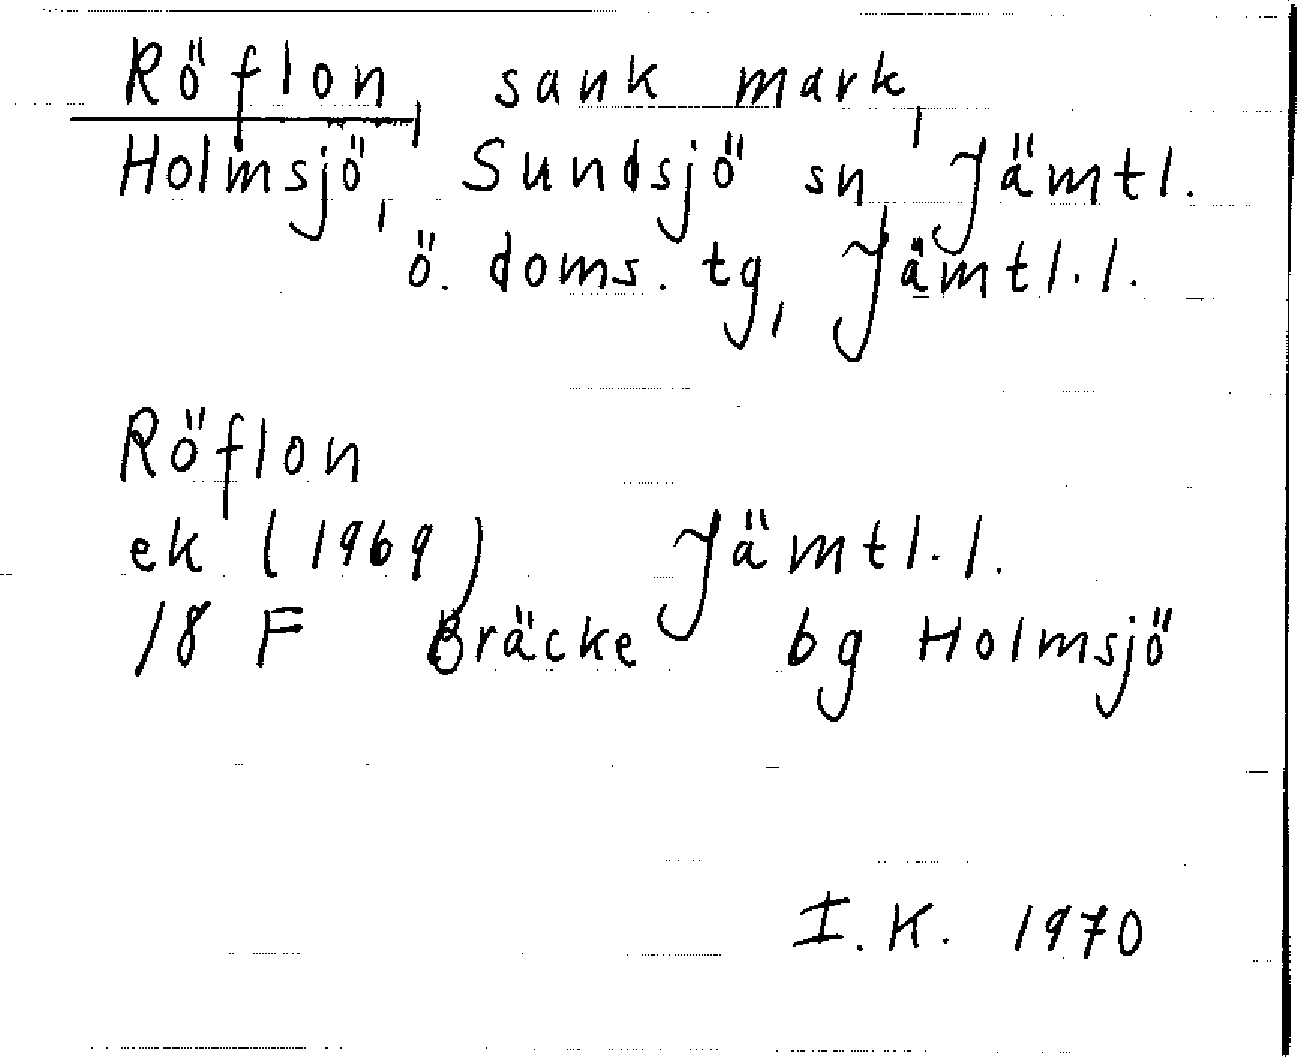 Röflon, sank mark,
Holmsjö, Sundsjö sn, Jämtl.
ö. doms. tg, Jämtl. l.
Röflon
ek (1969) Jämtl. l.
18 F Bräcke bg Holmsjö
I. K. 1970